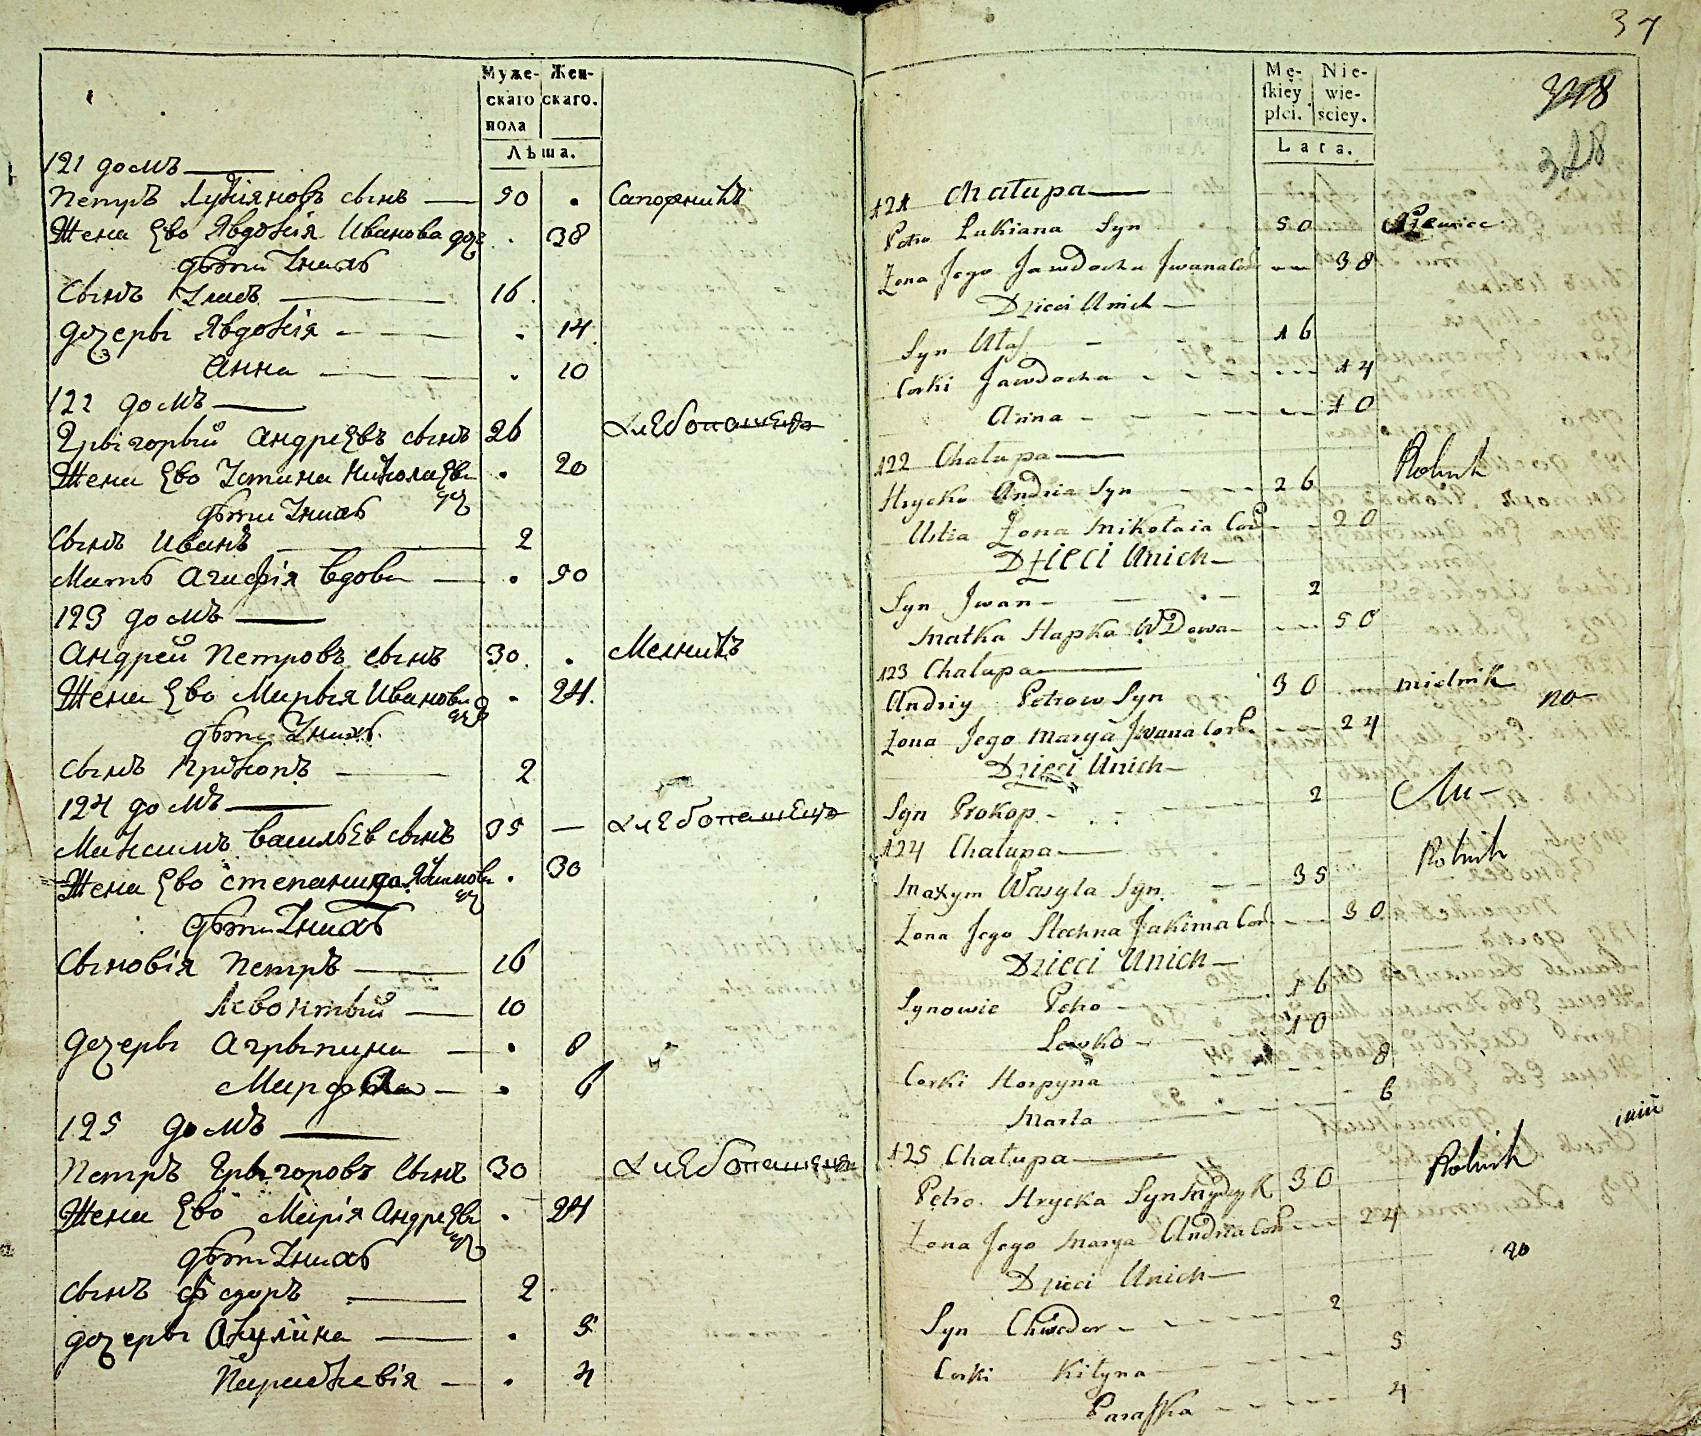 Муже-
скаго
пола
Жен-
скаго.
Лѣта.
121 домъ
Петръ Лукіяновъ сынъ — 50 . Сапожникъ
Жена Ево Явдокія Иванова доч . 38
дѣти Унихъ
Сынъ Улас — 16
дочери Явдокія — . 14
Анна — . 10
122 домъ
Грыгорый андриевъ сынъ 26 хлебопашецъ
Жена Ево Устина николаева доч . 20
дѣти Унихъ
Сынъ Иванъ — 2
Мать Агафія вдова — . 50
123 домъ
андрей Петровъ сынъ 30 . Мелникъ
Жена Ево Марья Иванова доч . 24.
дѣти Унихъ
сынъ Прокопъ — 2
124 домъ
Максимъ васильев сынъ 35 — хлебопашецъ
Жена Ево степанида Якимова доч . 30
дѣти Унихъ
Сыновія Петръ — 16
Левонтый — 10
дочеры Агрыпина — . 8
Марфа — . 6
125 домъ
Петръ Грыгоровъ Сынъ 30 хлебопашецъ
Жена Ево Марія Андриева доч . 24
дѣти Унихъ
сынъ Федоръ — 2
дочеры Акулина — . 5
Параскевія — . 4
37
328
Mę-
skiey
płci.
Nie-
wie-
sciey.
Lata.
121 Chałupa
Petro Lukiana Syn 50
Zona Jego Jawdocha Jwana Cor — 38
Dzieci Unich —
Syn Ułas — 16
Corki Jawdocha — 14
Anna — 10
122 Chałupa —
Hrycko Andria Syn — 26 Rolnik
Ustia Zona Mikołaia Cor — 20
Dzieci Unich —
Syn Jwan — 2
Matka Hapka Wdowa — 50
123 Chałupa
Andriy Petrow Syn 30 mielnik no
Zona Jego Marya Jwana Cor — 24
Dzieci Unich —
Syn Prokop — 2
124 Chałupa —
Maxym Wasyla Syn — 35 Rolnik
Zona Jego Stechna Jakima Cor — 30
Dzieci Unich —
Synowie Petro — 16
Lewko — 10
Corki Horpyna — 8
Marta — 6
125 Chałupa —
Petro Hrycka Syn 30 Rolnik
Zona Jego Marya Andria Cor — 24
Dzieci Unich —
Syn Chwedor — 2
Corki Kilyna — 5
Paraska — 4